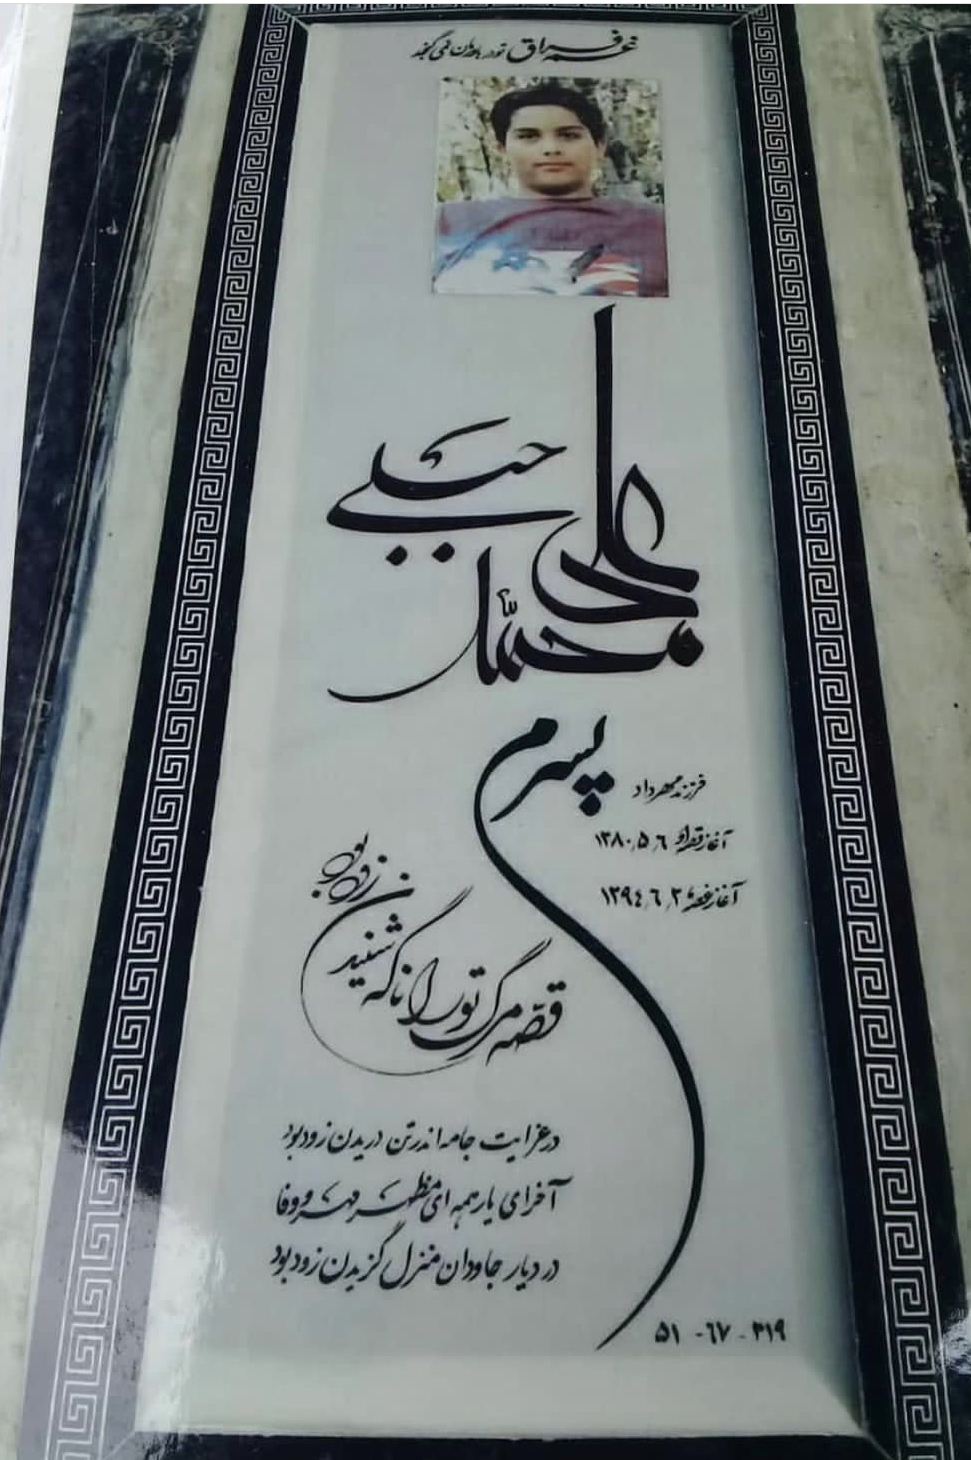 غم فراق تو در باورمان نمی گنجد
محمد علی
پسرم
فرزند مهرداد
آغاز قصه او ۱۳۸۰٫۵٫۶
آغاز غصه ۱۳۹۴٫۶٫۲
قصّه مرگ تو را ناگه شنیدن زود بود
در عزایت جامه اندر تن دریدن زود بود
آخر ای یار همه ای مظهر مهر و وفا
در دیار جاودان منزل گزیدن زود بود
۵۱ - ۶۷ - ۳۱۹